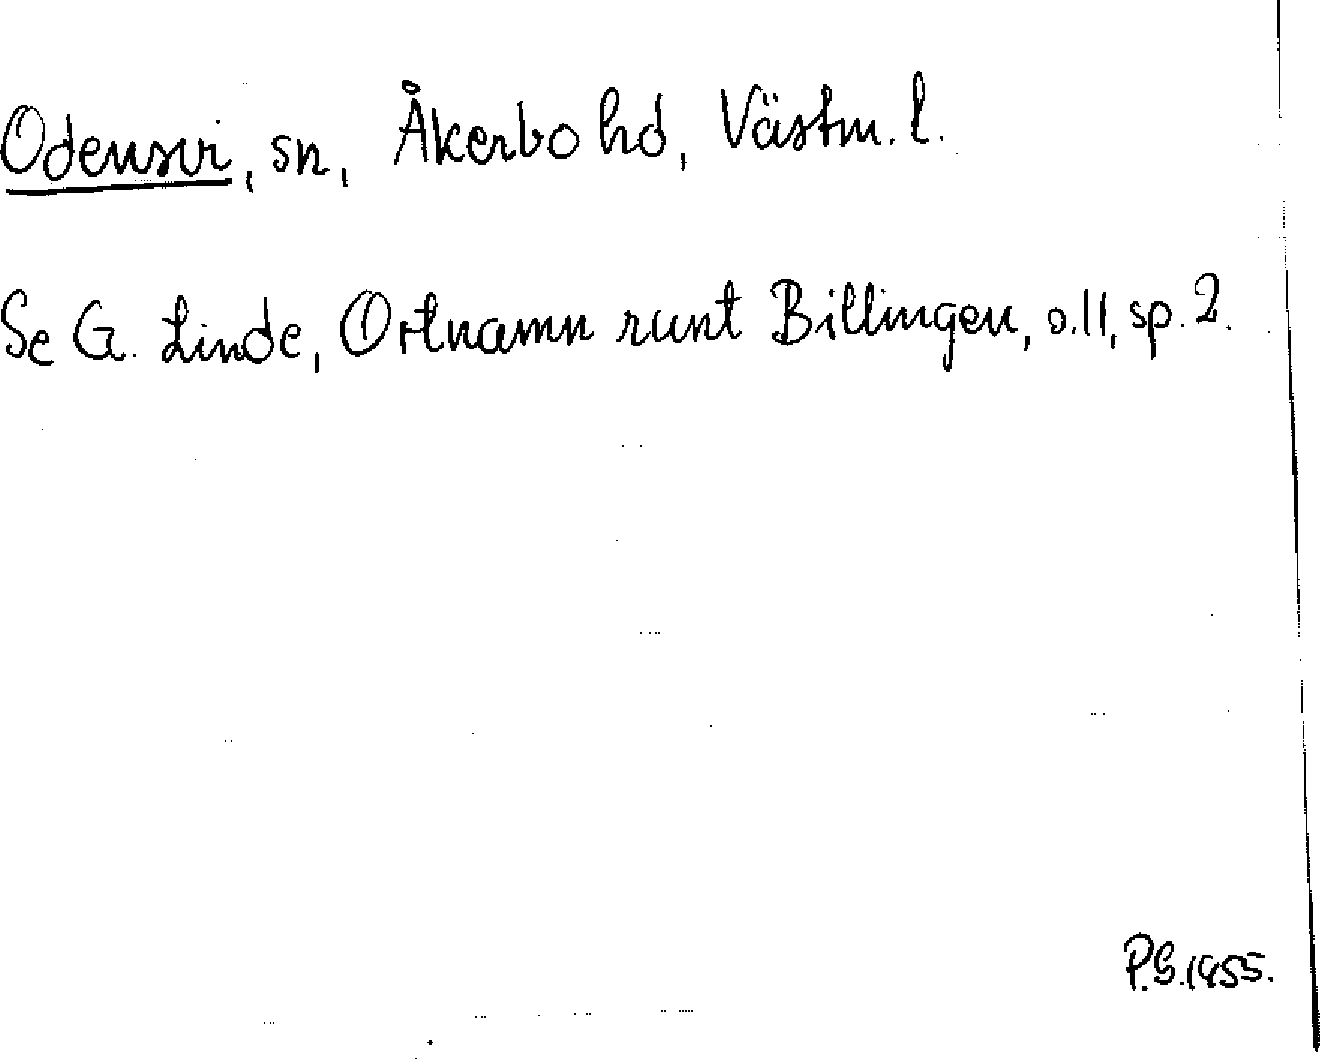 Odensvi, sn, Åkerbo hd, Västm. l.
Se G. Linde, Ortnamn runt Billingen, o.11, sp. 2.
P.G. 1955.